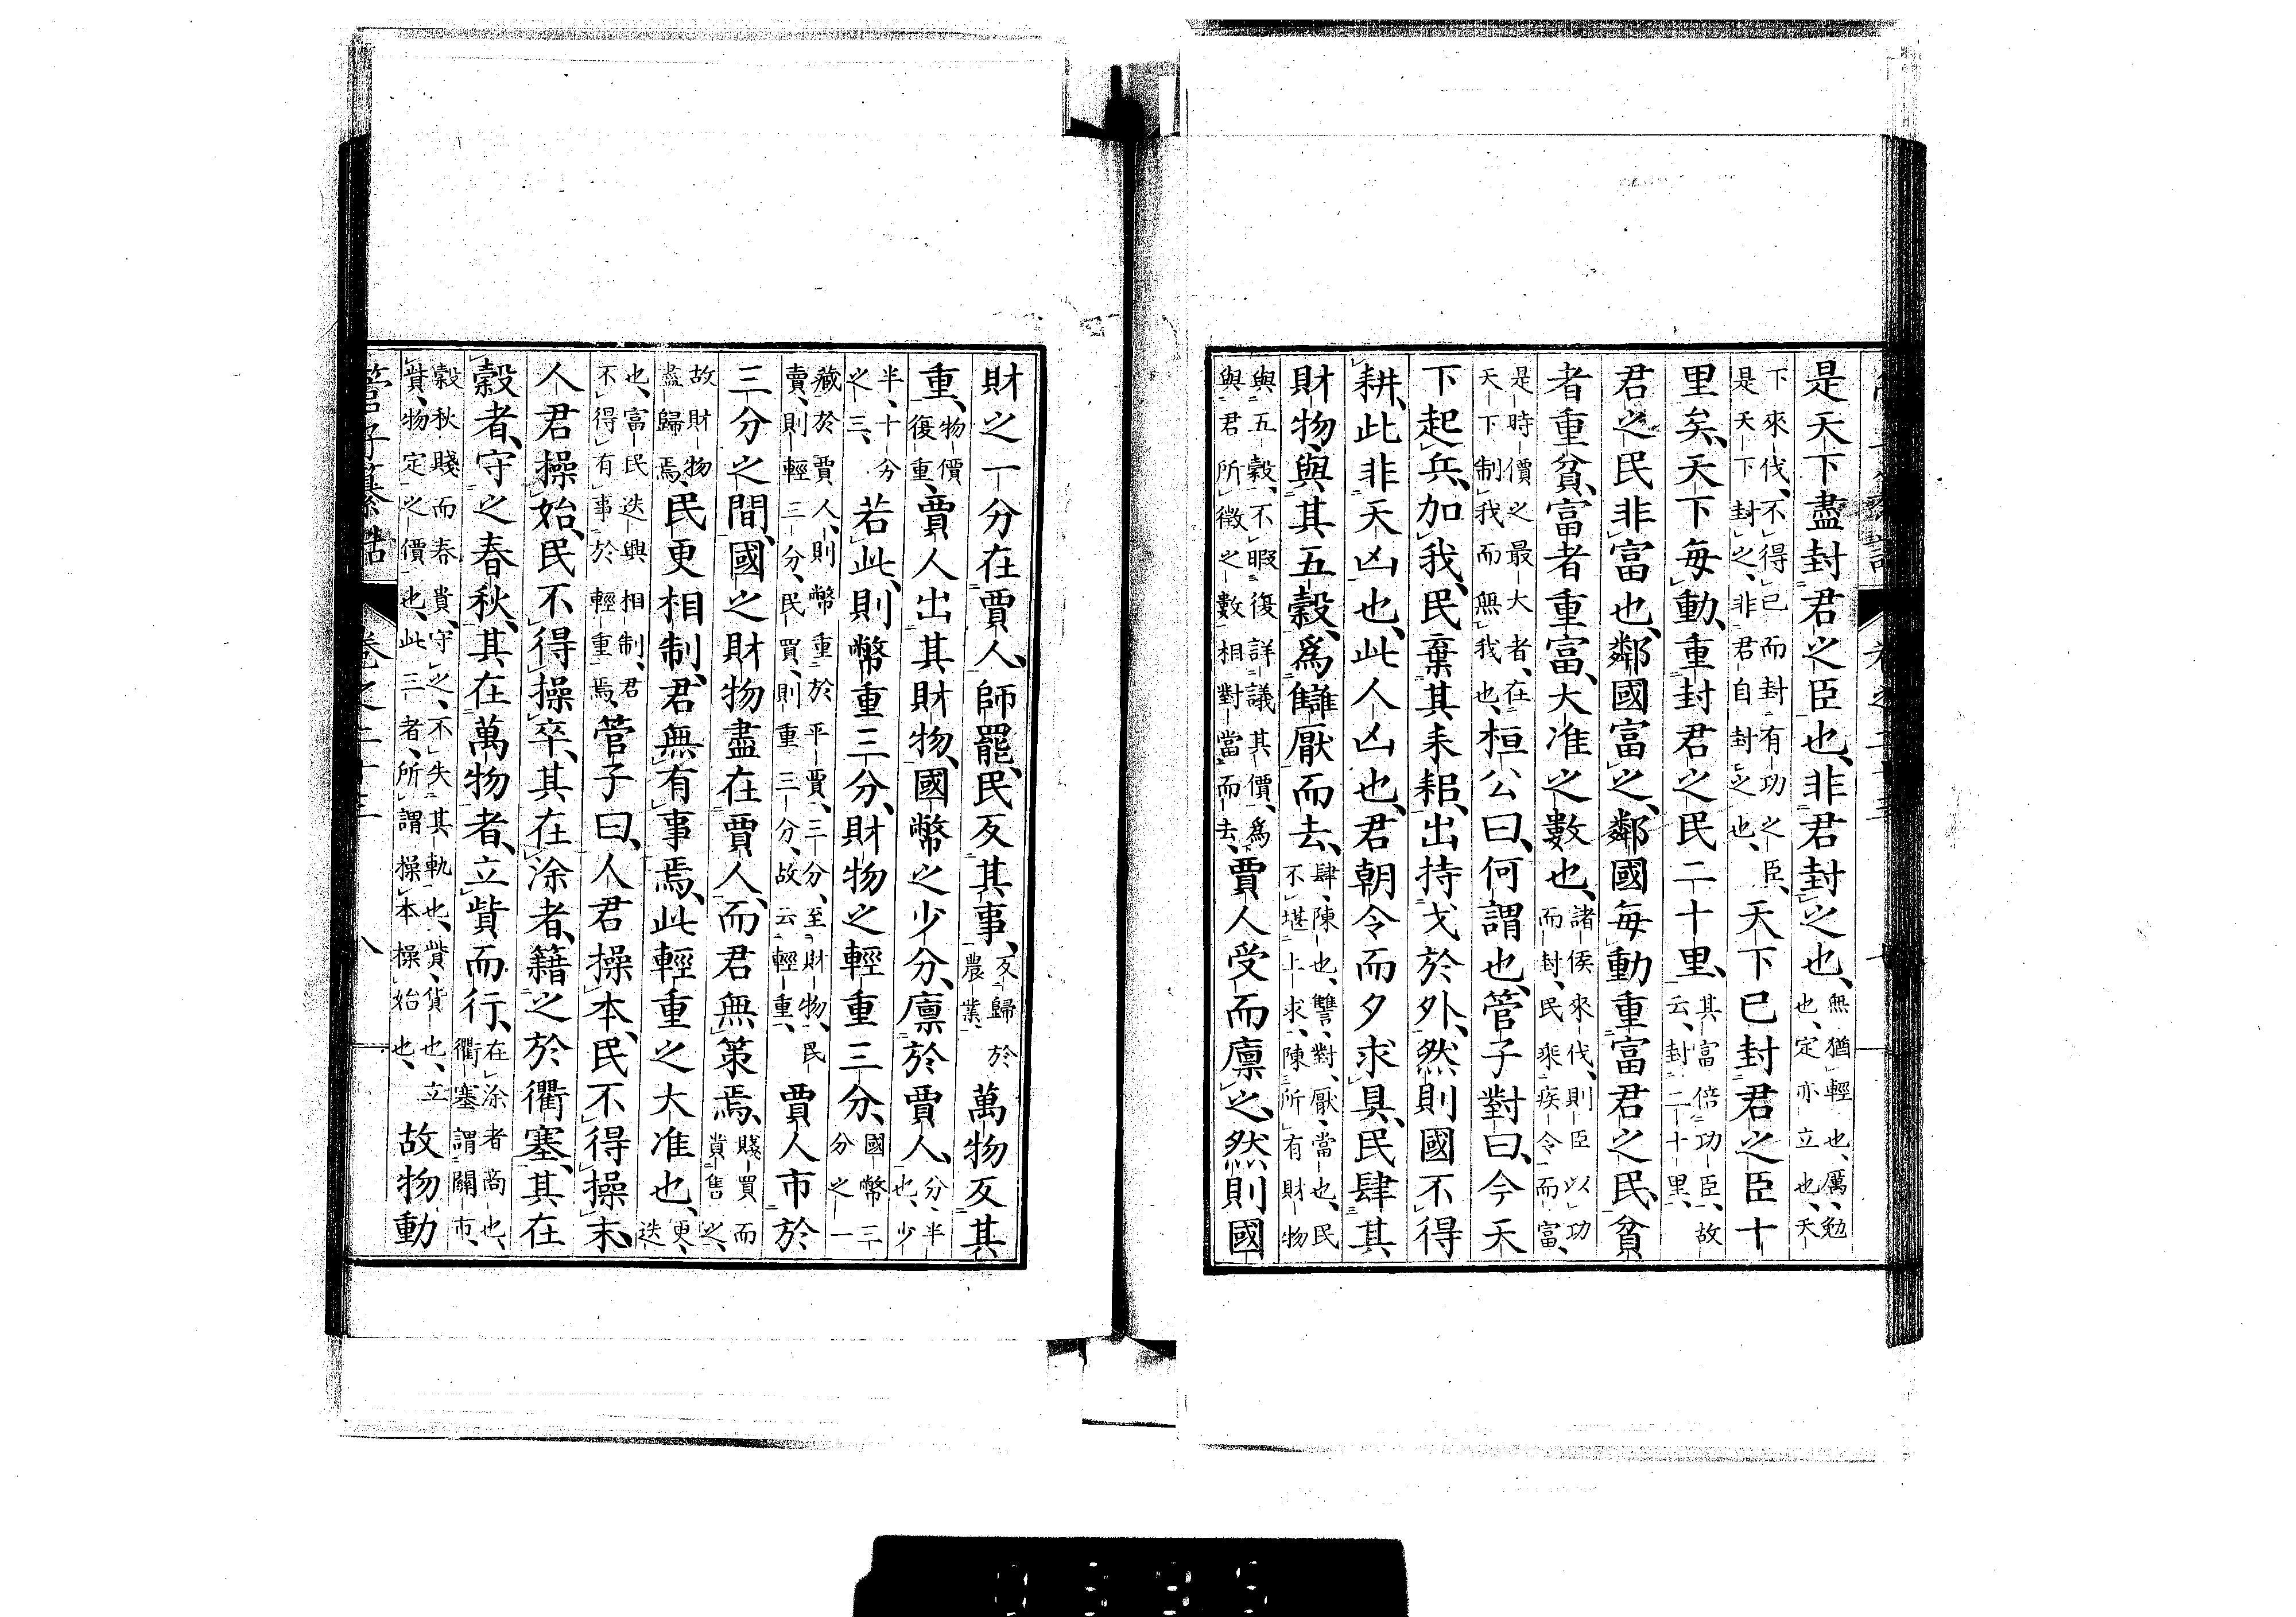 是天下盡封君之臣也、非君封之也、無猶輕也、厲、勉也、定亦立也、天
下來伐、不得已而封有功之臣、是天下封之、非君自封之也、天下已封君之臣十
里矣、天下每動、重封君之民二十里、其富倍功臣、故云、封二十里、
君之民非富也、鄰國富之、鄰國每動重富君之民、貧
者重貧、富者重富、大准之數也、諸侯來伐、則臣以功而封、民乘疾令而富、
是時價之最大者、在天下制我而無我也、桓公曰、何謂也、管子對曰、今天
下起兵、加我、民棄其耒耜、出持戈於外、然則國不得
耕、此非天凶也、此人凶也、君朝令而夕求具、民肆其
財物、與其五穀、爲讎厭而去、肆、陳也、讐、對、厭、當也、民不堪上求、陳所有財物
與五穀、不暇復詳議其價、爲與君所徵之數相對當而去、賈人受而廩之、然則國
財之一分在賈人、師罷、民反其事、反歸於農業、萬物反其
重、物價復重、賈人出其財物、國幣之少分、廩於賈人、分、半也、少
半、十分之三、若此、則幣重三分、財物之輕重三分、國幣三分之一
藏於賈人、則幣重於平賈、三分、至財物、民賣、則輕三分、民買、則重三分、故云輕重、賈人市於
三分之間、國之財物盡在賈人、而君無策焉、賤買而貴售之、
故財物盡歸焉、民更相制、君無有事焉、此輕重之大准也、更、迭
也、富民迭與相制、君不得有事於輕重焉、管子曰、人君操本、民不得操末、
人君操始、民不得操卒、其在涂者、籍之於衢塞、其在
穀者、守之春秋、其在萬物者、立貲而行、在涂者商也、衢塞謂關市、
穀秋賤而春貴、守之、不失其軌也、貲、貨也、立貲、物定之價也、此三者、所謂操本操始也、故物動
管子纂詁 卷之二十三 八